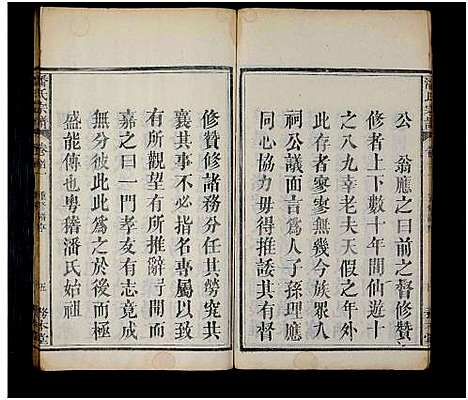 公　翁應之曰前之督修贊
修者上下數十年間仙遊十
之八九幸老夫天假之年外
此存者寥寥無幾今族眾入
祠公議面言為人子孫理應
同心協力毋得推諉其有督
修贊修諸務分任其勞究共
襄其事不必指名專屬以致
有所觀望有所推辭于聞而
嘉之曰一門孝友有志竟成
無分彼此此為之於後而
盛能傳也粵稽潘氏始祖
潘氏宗譜
卷首
五